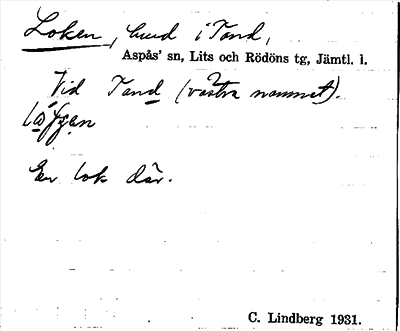 Loken, hud i Tand,
Aspås' sn, Lits och Rödöns tg, Jämtl. l.
Vid Tand (västra namnet).
En lok där.
C. Lindberg 1931.